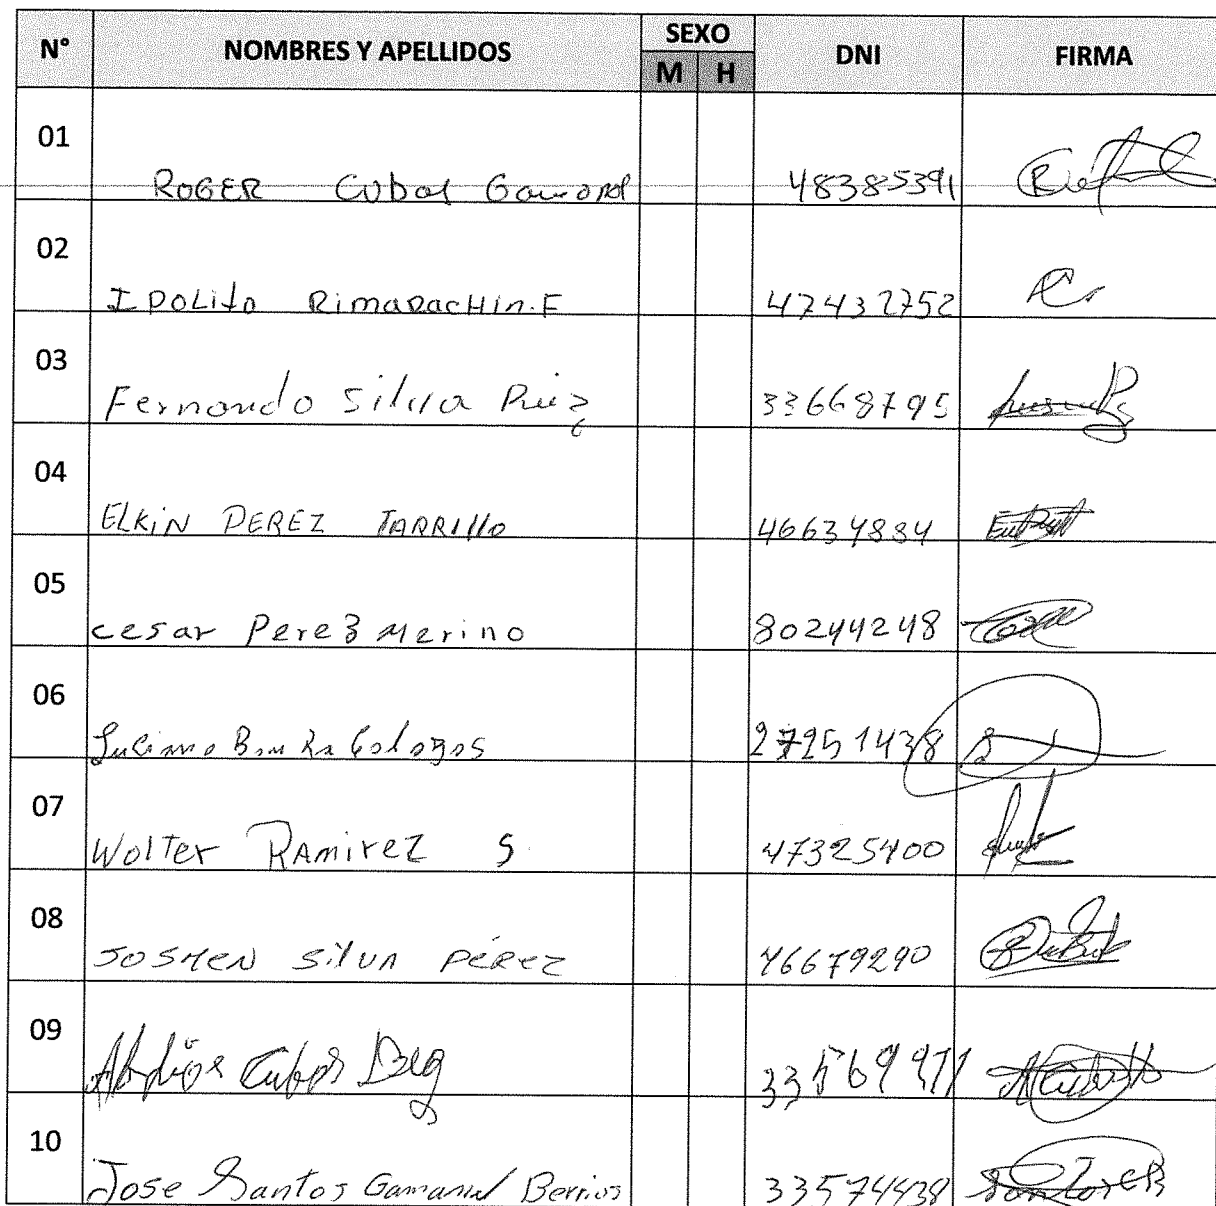 N° NOMBRES Y APELLIDOS SEXO DNI FIRMA
M H
01 ROGER Cubas 48385391
02 IPOLito RimaRacHin.F 47432752
03 Fernando Silva Ruiz 33668795
04 ELKiN PEREZ TARRIllo 46634884
05 cesar Perez Merino 80244248
06 Luciano 27251438
07 Wolter RAmirez S. 47325400
08 JOSMEN SilVA PÉREZ 46679290
09 Cubas 33569971
10 Jose Santos Gamonal Berrios 33574438